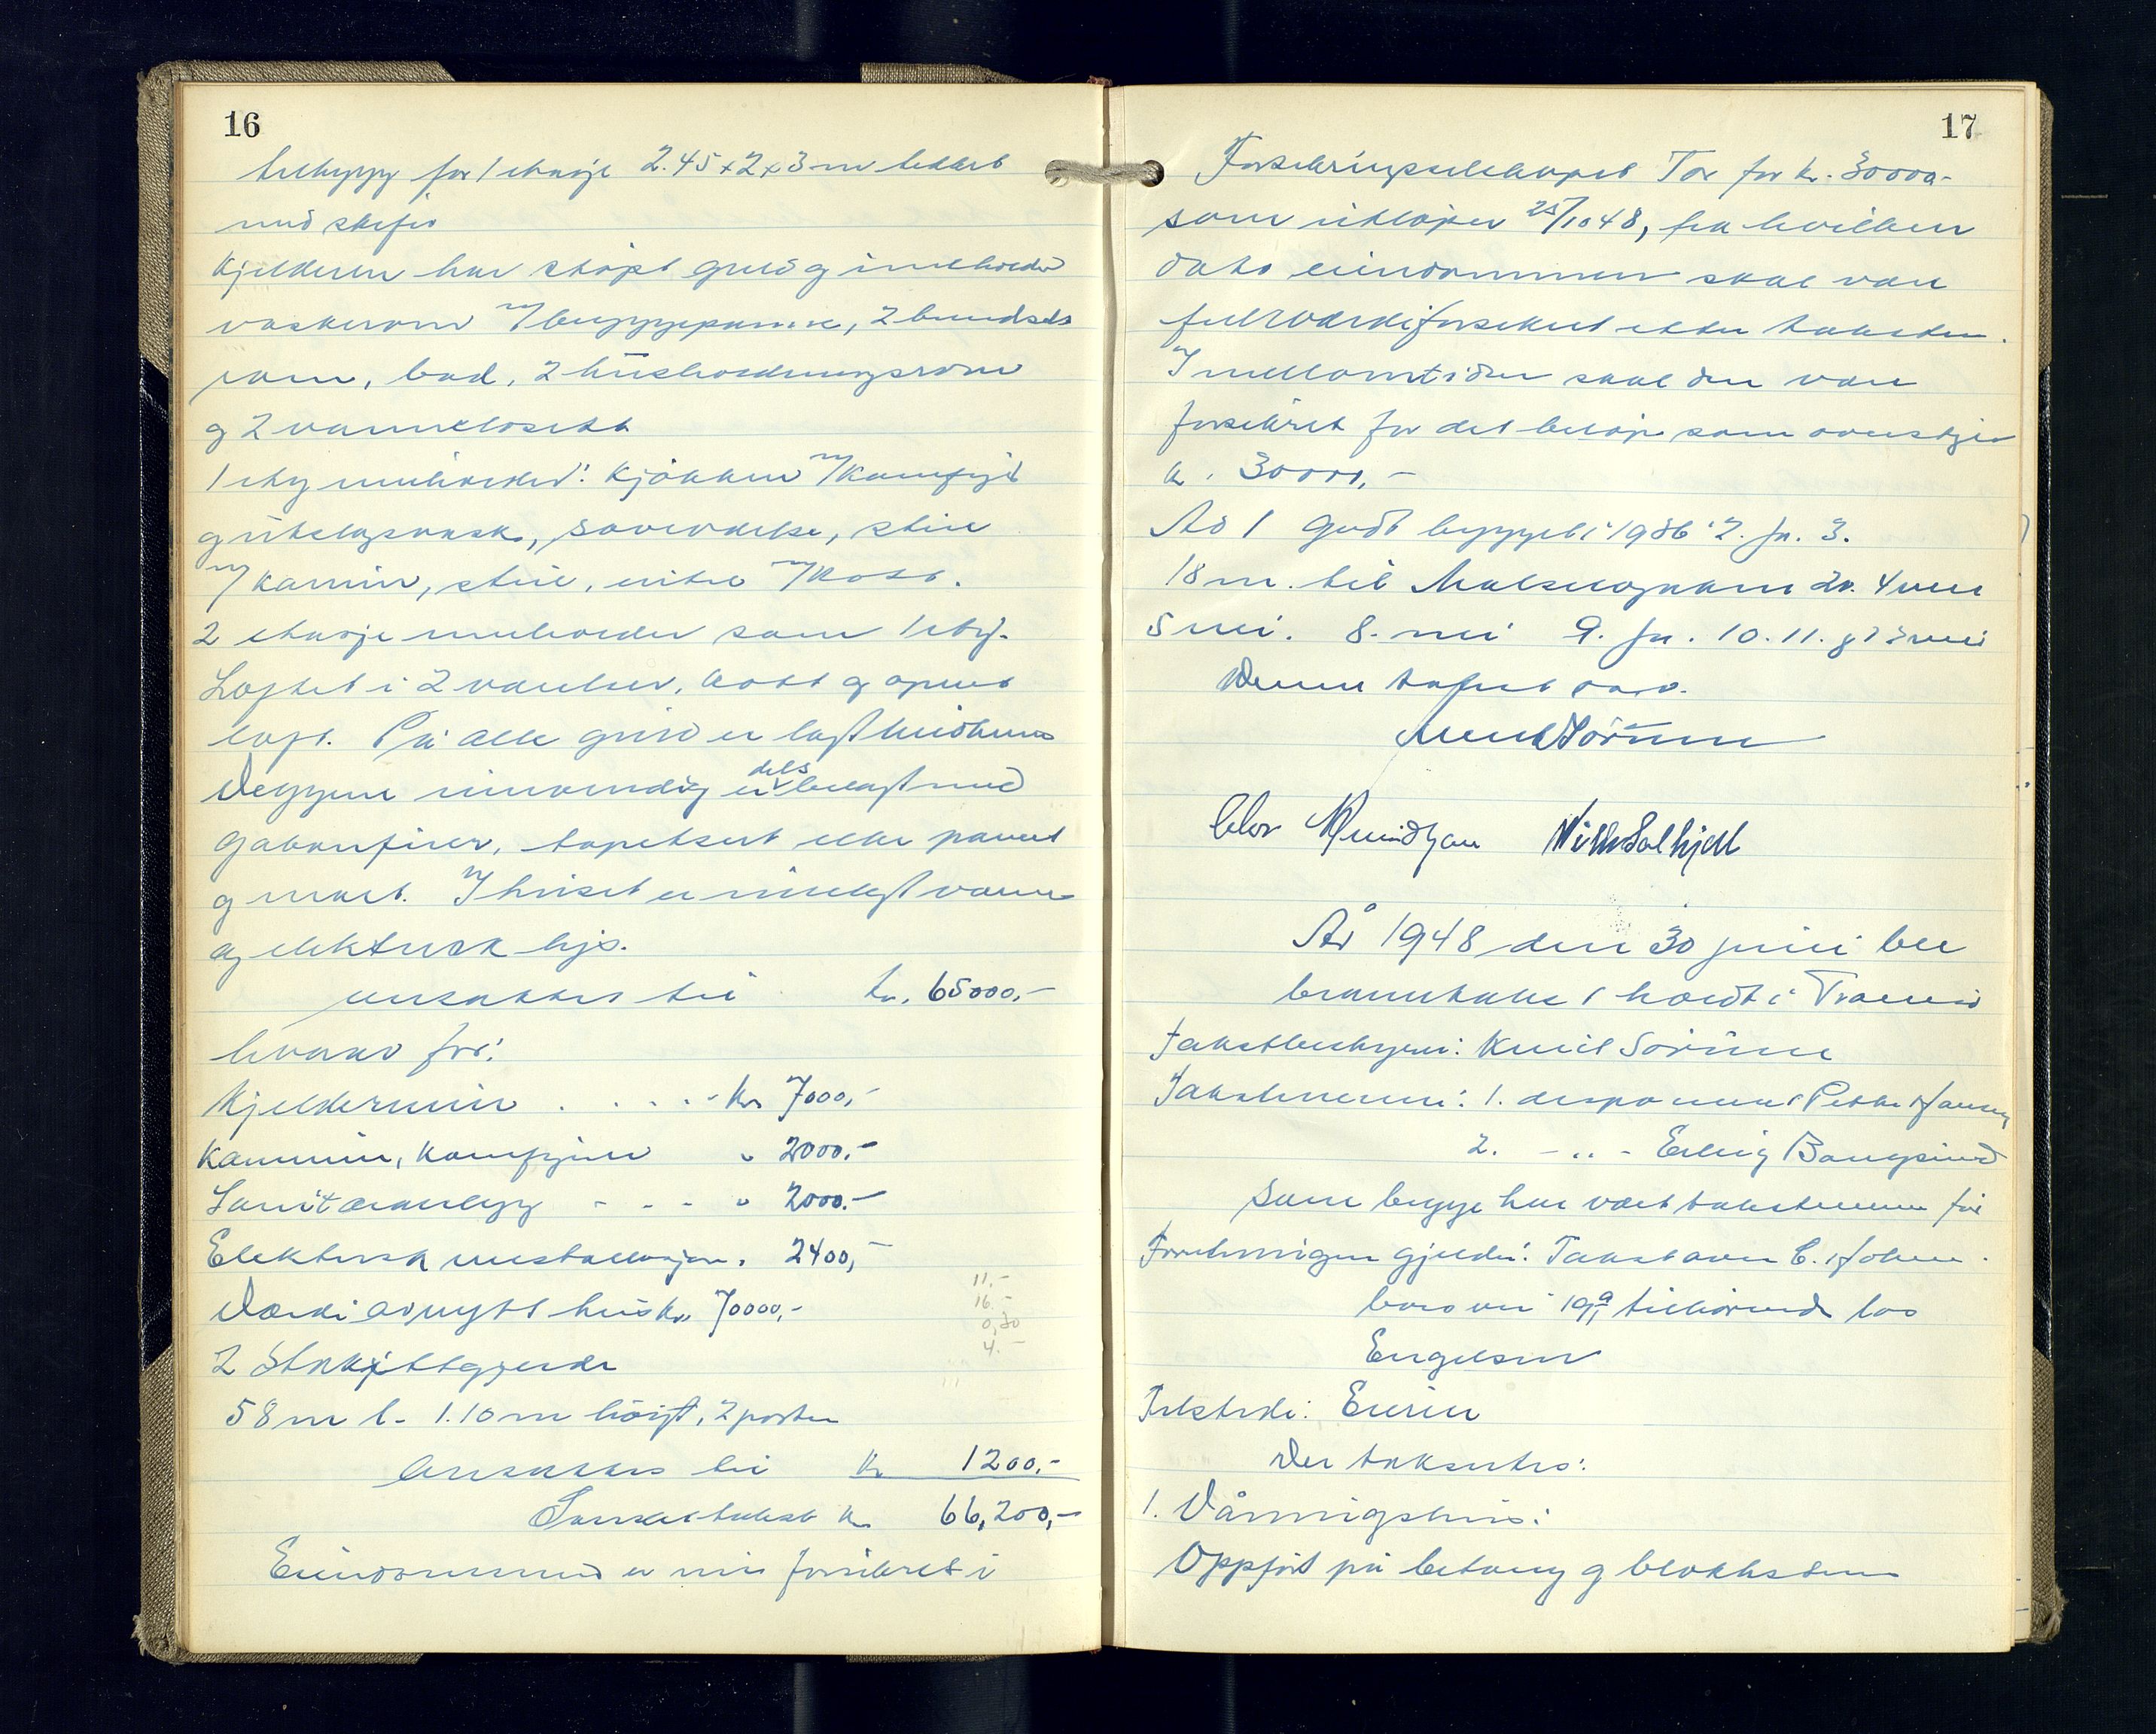 16
tilbygg for 1 etasje 2.45 x 2 x 3 m tekket
med skifer
Kjelderen har støpt gulv og inneholder
vaskerom m/bryggepanne, 2 brendsels
rom, bod, 2 husholdningsrom
og 2 vannklosett
1 etg inneholder: Kjøkken m/komfyr
og utslagsvask, soveværelse, stue
m/kamin, stue, entre m/kott.
2 etasje inneholder som 1 etg.
Loftet i 2 værelser, kott og åpent
loft. På alle gulv er lagt
Veggene innvendig er dels belagt med
gabonfiner, tapetsert eller panel
og malt. I huset er innlagt vann
og elektrisk lys.
ansattes til kr. 65000,-
hvorav for:
Kjeldermur . . . . - kr 7000,-
Kaminer, komfyrer " 2000.-
Sanitæranlegg - - - " 2000.-
Elektrisk installasjon. 2400,-
Verdi av nytt hus kr. 70000,-
11.-
16.-
0,30
4.-
2 Stakittgjerde
58 m l. 1.10 m høyt, 2 porter
Ansattes til kr 1200.-
Samlet takst kr 66,200,-
Eiendommen er nu forsikret i
17
Forsikringselskapet Tor for kr. 30000.-
som utløper 25/10 48, fra hvilken
dato eiendommen skal være
fullverdiforsikret etter taksten.
I mellomtiden skal den være
forsikret for det beløp som overstiger
kr. 30000,-
Ad 1 Godt bygget i 1936 2. ja. 3.
18 m. til 4 nei
5 nei. 8. nei 9. ja. 10. 11. og 12 nei
Denne takst
Sørum
År 1948 den 30 juni ble
branntakst holdt i Tromsø
Takstbestyrer: Sørum
Takstmenn: 1. disponent Petter Hansen
2. - " - Erling Bangsund
som begge har vært takstmenn før
Forretningen gjelder: Takst over
19a tilhørende
Engelsen
Tilstede: Eieren
Der takseres:
1. Våningshus:
Oppført på betong og blokksten